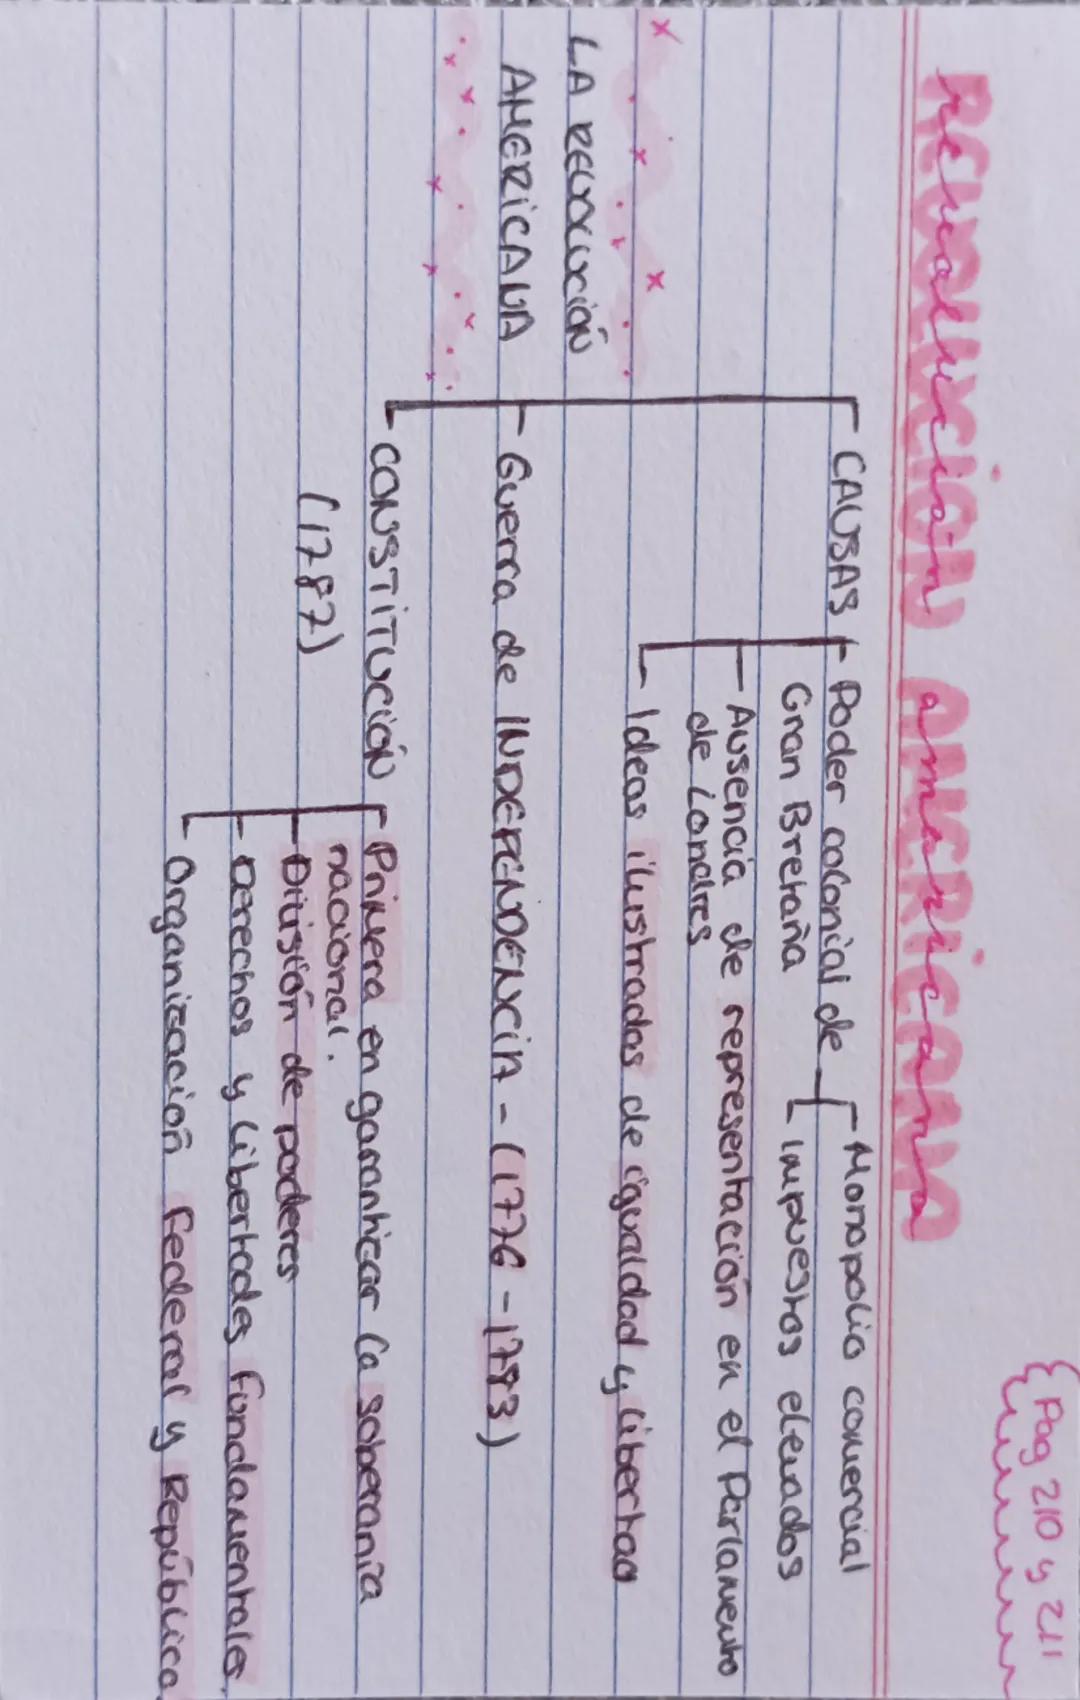 Revolución americana
Pag 210 y 211
LA REVOLUCIÓN
AMERICANA
CAUSAS
Poder colonial de
Gran Bretaña
Monopolio comercial
Impuestos elevados
Ausencia de representación en el Parlamento
de Londres
Ideas ilustradas de igualdad y libertad
Guerra de INDEPENDENCIA - (1776 - 1783)
CONSTITUCIÓN
(1787)
Primera en garantizar la soberanía
nacional.
División de poderes
Derechos y libertades fundamentales.
Organización Federal y República